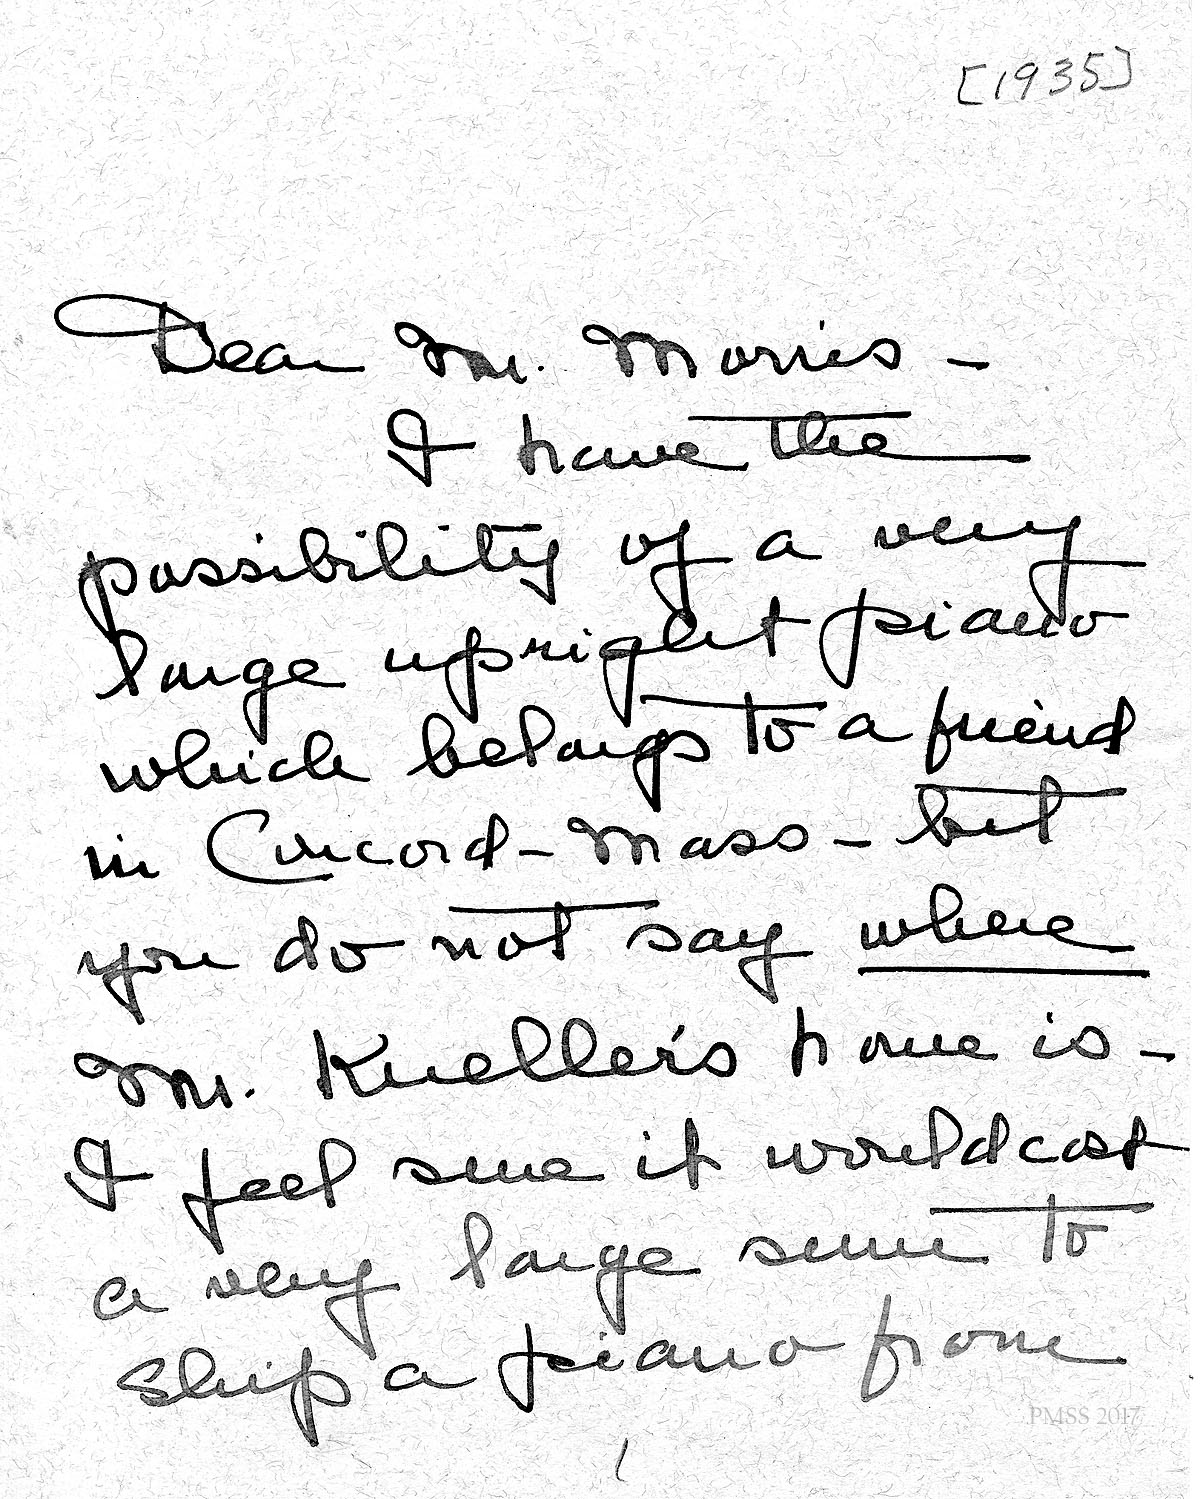 [1935]
Dear Mr. Morris -
I have the
possibility of a very
large upright piano
which belongs to a friend
in Concord - Mass - but
you do not say where
Mr. Kneller's home is -
I feel sure it would cost
a very large sum to
ship a piano from
PMSS 2017
1